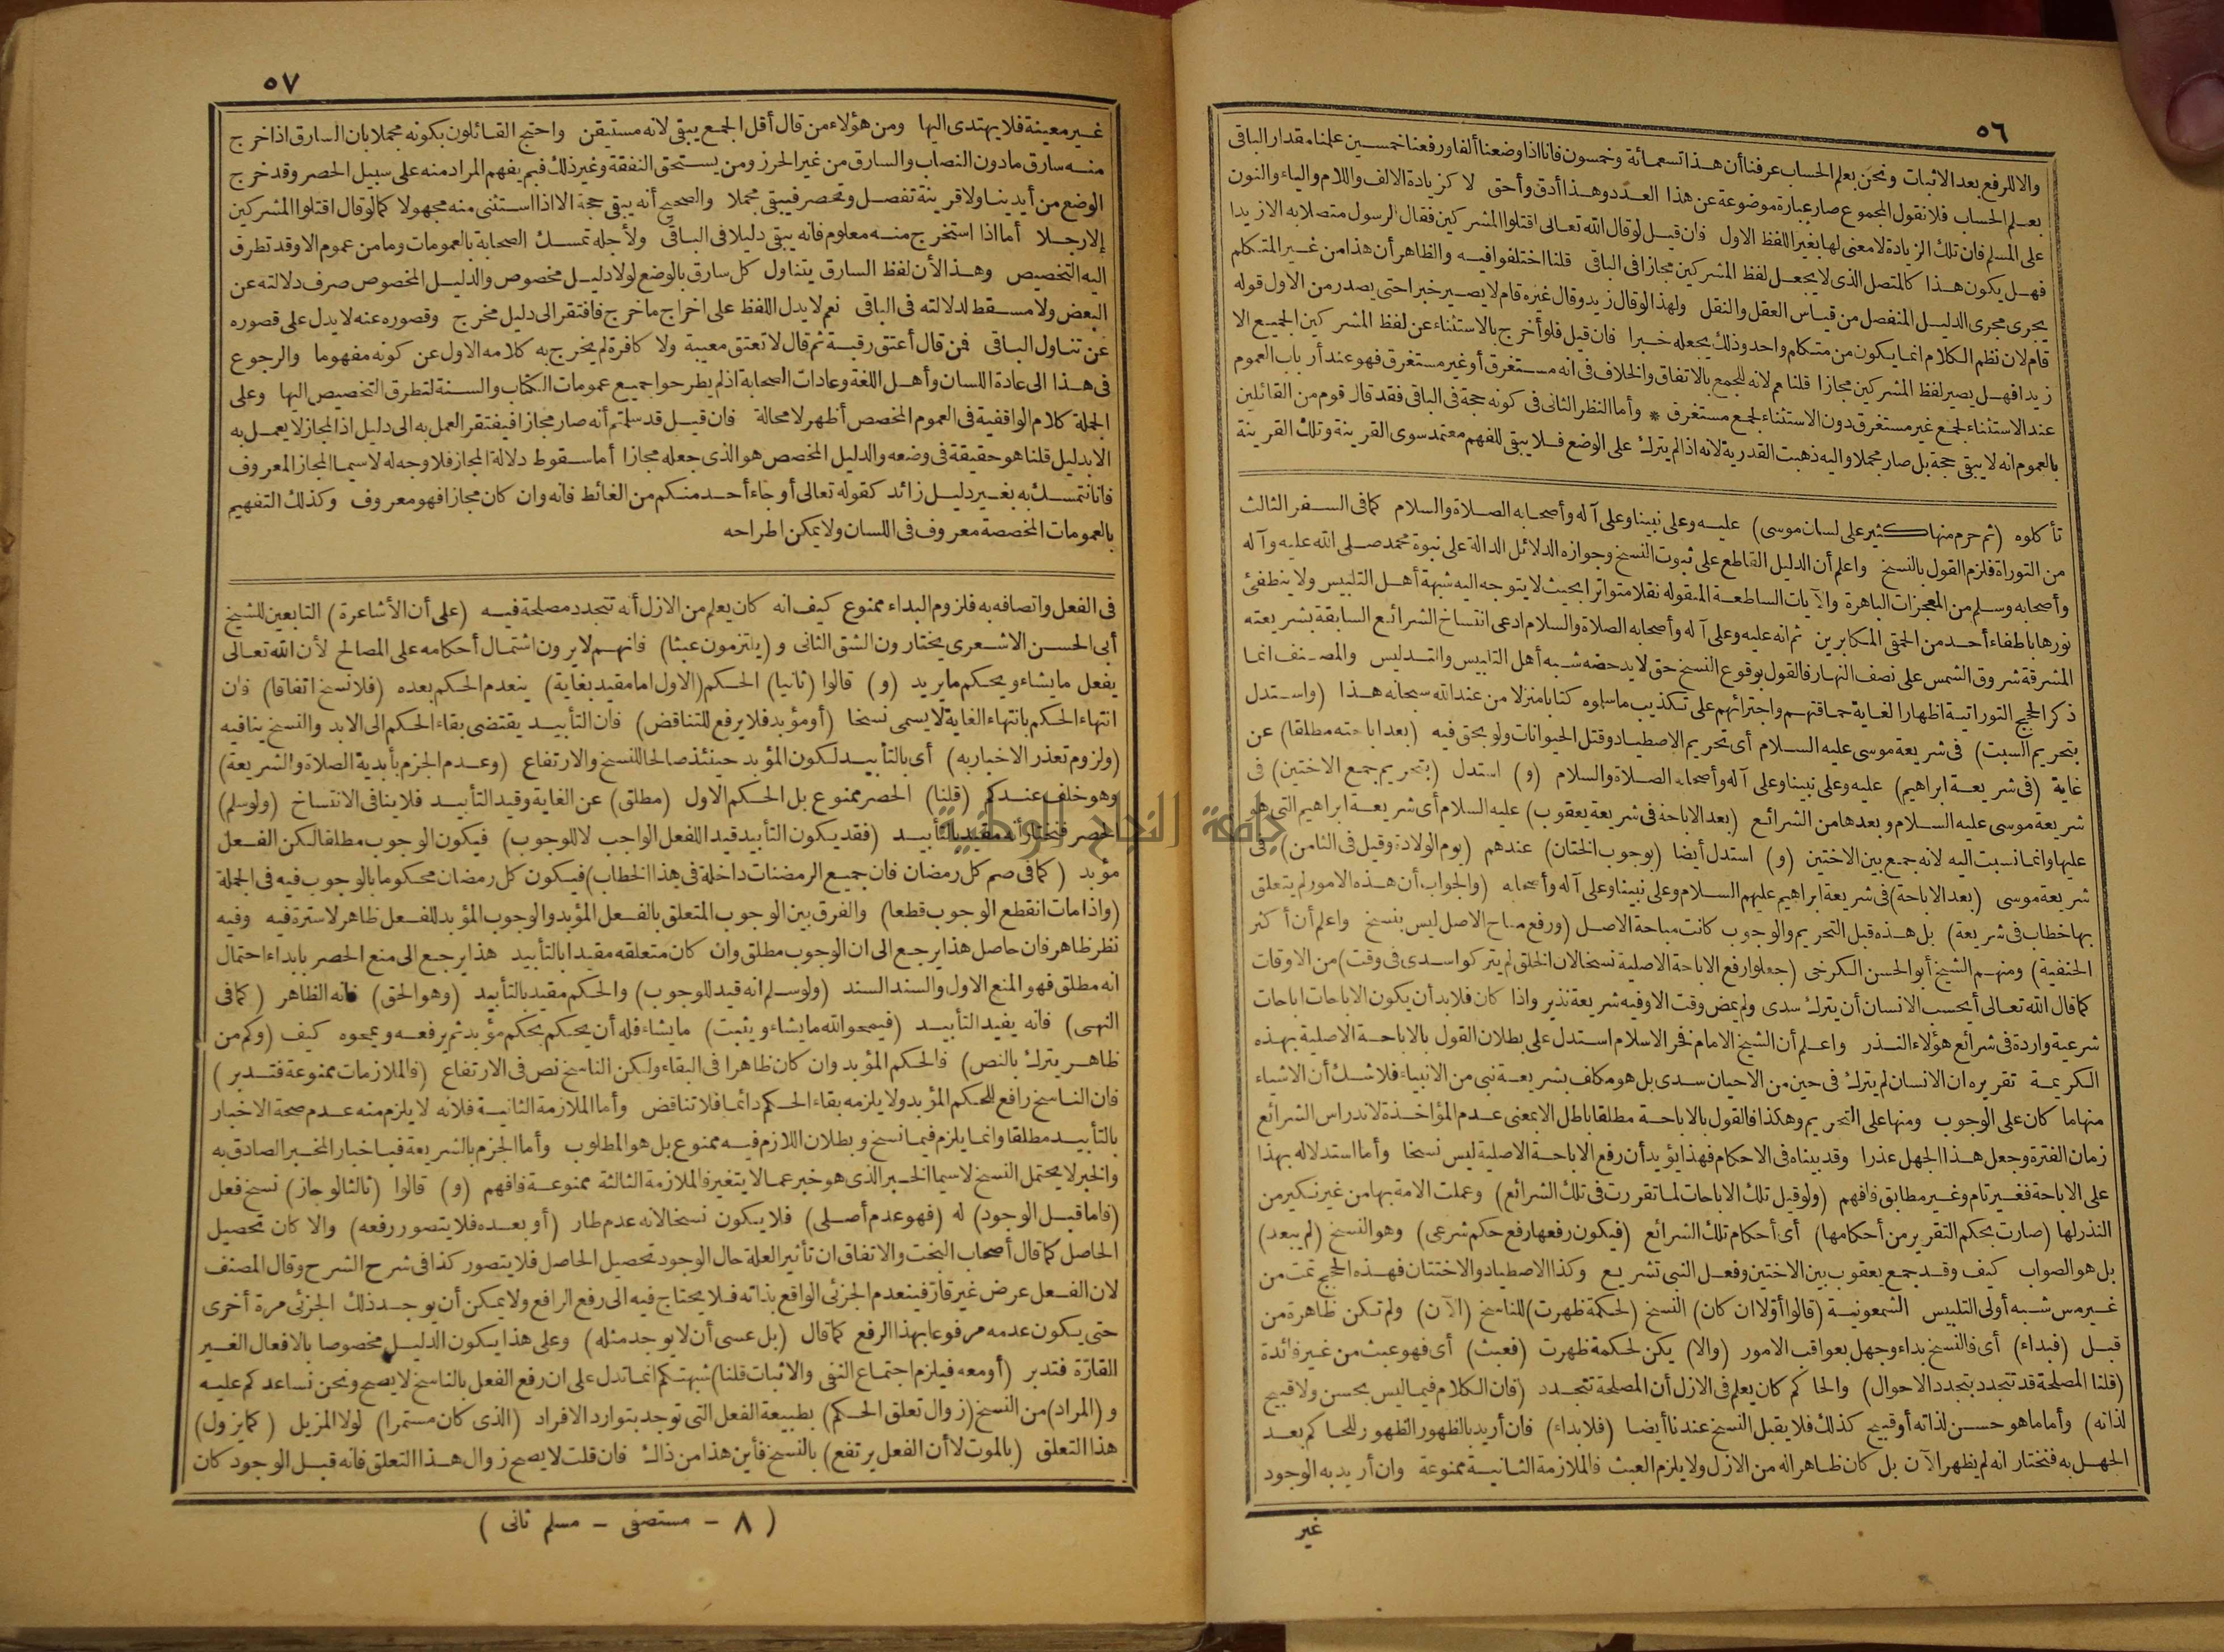 ٥٦
والا للرفع بعد الاثبات ونحن بعلم الحساب عرفنا أن هذا تسعمائة وخمسون فانا اذا وضعنا ألفا ورفعنا خمسين علمنا مقدار الباقى
بعلم الحساب فلا نقول المجموع صار عبارة موضوعة عن هذا العدد وهذا أدق وأحق لا كزيادة الالف واللام والياء والنون
على المسلم فان تلك الزيادة لا معنى لها بغير اللفظ الاول فان قيل لو قال الله تعالى اقتلوا المشركين فقال الرسول متصلا به الا زيدا
فهل يكون هذا كالمتصل الذى لا يجعل لفظ المشركين مجازا فى الباقى قلنا اختلفوا فيه والظاهر أن هذا من غير المتكلم
يجرى مجرى الدليل المنفصل من قياس العقل والنقل ولهذا لو قال زيد وقال غيره قام لا يصير خبرا حتى يصدر من الاول قوله
قام لان نظم الكلام انما يكون من متكلم واحد وذلك يجعله خبرا فان قيل فلو أخرج بالاستثناء عن لفظ المشركين الجميع الا
زيدا فهل يصير لفظ المشركين مجازا قلنا نعم لانه للجمع بالاتفاق والخلاف فى انه مستغرق أو غير مستغرق فهو عند أرباب العموم
عند الاستثناء لجمع غير مستغرق دون الاستثناء لجمع مستغرق * وأما النظر الثانى فى كونه حجة فى الباقى فقد قال قوم من القائلين
بالعموم انه لا يبقى حجة بل صار مجملا واليه ذهبت القدرية لانه اذا لم يترك على الوضع فلا يبقى للفهم معتمد سوى القرينة وتلك القرينة
تأكلوه (ثم حرم منها كثير على لسان موسى) عليه وعلى نبينا وعلى آله وأصحابه الصلاة والسلام كما فى السفر الثالث
من التوراة فلزم القول بالنسخ واعلم أن الدليل القاطع على ثبوت النسخ وجوازه الدلائل الدالة على نبوة محمد صلى الله عليه وآله
وأصحابه وسلم من المعجزات الباهرة والآيات الساطعة المنقوله نقلا متواترا بحيث لا يتوجه اليه شبهة أهل التلبيس ولا ينطفئ
نورها باطفاء أحد من الحمقى المكابرين ثم انه عليه وعلى آله وأصحابه الصلاة والسلام ادعى انتساخ الشرائع السابقة بشريعته
المشرقة شروق الشمس على نصف النهار فالقول بوقوع النسخ حق لا يدحضه شبه أهل التلبيس والتدليس والمصنف انما
ذكر الحجج التوراتية اظهارا لغاية حماقتهم واجترائهم على تكذيب ما سلوه كتابا منزلا من عند الله سبحانه هذا (واستدل
بتحريم السبت) فى شريعة موسى عليه السلام أى تحريم الاصطياد وقتل الحيوانات ولو بحق فيه (بعد اباحته مطلقا) عن
غاية (فى شريعة ابراهيم) عليه وعلى نبينا وعلى آله وأصحابه الصلاة والسلام (و) استدل (بتحريم جمع الاختين) فى
شريعة موسى عليه السلام وبعدها من الشرائع (بعد الاباحة فى شريعة يعقوب) عليه السلام أى شريعة ابراهيم التى هو
عليها وانما نسبت اليه لانه جمع بين الاختين (و) استدل أيضا (بوجوب الختان) عندهم (يوم الولادة وقيل فى الثامن) فى
شريعة موسى (بعد الاباحة) فى شريعة ابراهيم عليهم السلام وعلى نبينا وعلى آله وأصحابه (والجواب أن هذه الامور لم يتعلق
بها خطاب فى شريعة) بل هذه قبل التحريم والوجوب كانت مباحة الاصل (ورفع مباح الاصل ليس بنسخ واعلم أن أكثر
الحنفية) ومنهم الشيخ أبو الحسن الكرخى (جعلوا رفع الاباحة الاصلية نسخا لان الخلق لم يتركوا سدى فى وقت) من الاوقات
كما قال الله تعالى أيحسب الانسان أن يترك سدى ولم يمض وقت الا وفيه شريعة نذير واذا كان فلا بد أن يكون الاباحات اباحات
شرعية واردة فى شرائع هؤلاء النذر واعلم أن الشيخ الامام فخر الاسلام استدل على بطلان القول بالاباحة الاصلية بهذه
الكريمة تقريره ان الانسان لم يترك فى حين من الاحيان سدى بل هو مكلف بشريعة نبى من الانبياء فلا شك أن الاشياء
منها ما كان على الوجوب ومنها على التحريم وهكذا فالقول بالاباحة مطلقا باطل الا بمعنى عدم المؤاخذة لاندراس الشرائع
زمان الفترة وجعل هذا الجهل عذرا وقد بيناه فى الاحكام فهذا يؤيد أن رفع الاباحة الاصلية ليس نسخا وأما استدلاله بهذا
على الاباحة فغير تام وغير مطابق فافهم (ولو قيل تلك الاباحات لما تقررت فى تلك الشرائع) وعملت الامة بها من غير نكير من
النذر لها (صارت بحكم التقرير من أحكامها) أى أحكام تلك الشرائع (فيكون رفعها رفع حكم شرعى) وهو النسخ (لم يبعد)
بل هو الصواب كيف وقد جمع يعقوب بين الاختين وفعل النبى تشريع وكذا الاصطياد والاختتان فهذه الحجج تمت من
غير مس شبه أولى التلبيس الشمعونية (قالوا أولا ان كان) النسخ (لحكمة ظهرت) للناسخ (الآن) ولم تكن ظاهرة من
قبل (فبداء) أى فالنسخ بداء وجهل بعواقب الامور (والا) يكن لحكمة ظهرت (فعبث) أى فهو عبث من غير فائدة
(قلنا المصلحة قد تتجدد بتجدد الاحوال) والحاكم كان يعلم فى الازل أن المصلحة تتجدد (فان الكلام فيما ليس بحسن ولا قبيح
لذاته) وأما ما هو حسن لذاته أو قبيح كذلك فلا يقبل النسخ عندنا أيضا (فلا بداء) فان أريد بالظهور الظهور للحاكم بعد
الجهل به فنختار انه لم يظهر الآن بل كان ظاهرا له من الازل ولا يلزم العبث فالملازمة الثانية ممنوعة وان أريد به الوجود
غير
٥٧
غير معينة فلا يهتدى اليها ومن هؤلاء من قال أقل الجمع يبقى لانه مستيقن واحتج القائلون بكونه مجملا بان السارق اذا خرج
منه سارق ما دون النصاب والسارق من غير الحرز ومن يستحق النفقة وغير ذلك فبم يفهم المراد منه على سبيل الحصر وقد خرج
الوضع من أيدينا ولا قرينة تفصل وتحصر فيبقى مجملا والصحيح أنه يبقى حجة الا اذا استثنى منه مجهولا كما لو قال اقتلوا المشركين
إلا رجلا أما اذا استخرج منه معلوم فانه يبقى دليلا فى الباقى ولأجله تمسك الصحابة بالعمومات وما من عموم الا وقد تطرق
اليه التخصيص وهذا لأن لفظ السارق يتناول كل سارق بالوضع لولا دليل مخصوص والدليل المخصوص صرف دلالته عن
البعض ولا مسقط لدلالته فى الباقى نعم لا يدل اللفظ على اخراج ما خرج فافتقر الى دليل مخرج وقصوره عنه لا يدل على قصوره
عن تناول الباقى فمن قال أعتق رقبة ثم قال لا تعتق معيبة ولا كافرة لم يخرج به كلامه الاول عن كونه مفهوما والرجوع
فى هذا الى عادة اللسان وأهل اللغة وعادات الصحابة اذ لم يطرحوا جميع عمومات الكتاب والسنة لتطرق التخصيص اليها وعلى
الجملة كلام الواقفية فى العموم المخصص أظهر لا محالة فان قيل قد سلمتم أنه صار مجازا فيفتقر العمل به الى دليل اذ المجاز لا يعمل به
الا بدليل قلنا هو حقيقة فى وضعه والدليل المخصص هو الذى جعله مجازا أما سقوط دلالة المجاز فلا وجه له لا سيما المجاز المعروف
فانا نتمسك به بغير دليل زائد كقوله تعالى أو جاء أحد منكم من الغائط فانه وان كان مجازا فهو معروف وكذلك التفهيم
بالعمومات المخصصة معروف فى اللسان ولا يمكن اطراحه
فى الفعل واتصافه به فلزوم البداء ممنوع كيف انه كان يعلم من الازل أنه تتجدد مصلحة فيه (على أن الأشاعرة) التابعين للشيخ
أبى الحسن الاشعرى يختارون الشق الثانى و (يلتزمون عبثا) فانهم لا يرون اشتمال أحكامه على المصالح لأن الله تعالى
يفعل ما يشاء ويحكم ما يريد (و) قالوا (ثانيا) الحكم (الاول اما مقيد بغاية) ينعدم الحكم بعده (فلا نسخ اتفاقا) فان
انتهاء الحكم بانتهاء الغاية لا يسمى نسخا (أو مؤبد فلا يرفع للتناقض) فان التأبيد يقتضى بقاء الحكم الى الابد والنسخ ينافيه
(ولزوم تعذر الاخبار به) أى بالتأبيد لكون المؤبد حينئذ صالحا للنسخ والارتفاع (وعدم الجزم بأبدية الصلاة والشريعة)
وهو خلف عندكم (قلنا) الحصر ممنوع بل الحكم الاول (مطلق) عن الغاية وقيد التأبيد فلا ينافى الانتساخ (ولو سلم)
الحصر فنختار أنه مقيد بالتأبيد (فقد يكون التأبيد قيد اللفعل الواجب لا للوجوب) فيكون الوجوب مطلقا لكن الفعل
مؤبد (كما فى صم كل رمضان فان جميع الرمضنات داخلة فى هذا الخطاب) فيكون كل رمضان محكوما بالوجوب فيه فى الجملة
(واذا مات انقطع الوجوب قطعا) والفرق بين الوجوب المتعلق بالفعل المؤبد والوجوب المؤبد للفعل ظاهر لا سترة فيه وفيه
نظر ظاهر فان حاصل هذا يرجع الى ان الوجوب مطلق وان كان متعلقه مقيدا بالتأبيد هذا يرجع الى منع الحصر بابداء احتمال
انه مطلق فهو المنع الاول والسند السند (ولو سلم انه قيد للوجوب) والحكم مقيد بالتأبيد (وهو الحق) فانه الظاهر (كما فى
النهى) فانه يفيد التأبيد (فيمحو الله ما يشاء ويثبت) ما يشاء فله أن يحكم بحكم مؤبد ثم يرفعه ويمحوه كيف (وكم من
ظاهر يترك بالنص) فالحكم المؤبد وان كان ظاهرا فى البقاء ولكن الناسخ نص فى الارتفاع (فالملازمات ممنوعة فتدبر)
فان الناسخ رافع للحكم المؤبد ولا يلزمه بقاء الحكم دائما فلا تناقض وأما الملازمة الثانية فلانه لا يلزم منه عدم صحة الاخبار
بالتأبيد مطلقا وانما يلزم فيما نسخ وبطلان اللازم فيه ممنوع بل هو المطلوب وأما الجزم بالشريعة فباخبار المخبر الصادق به
والخبر لا يحتمل النسخ لا سيما الخبر الذى هو خبر عما لا يتغير فالملازمة الثالثة ممنوعة فافهم (و) قالوا (ثالثا لو جاز) نسخ فعل
(فاما قبل الوجود) له (فهو عدم أصلى) فلا يكون نسخا لانه عدم طار (أو بعده فلا يتصور رفعه) والا كان تحصيل
الحاصل كما قال أصحاب البخت والاتفاق ان تأثير العلة حال الوجود تحصيل الحاصل فلا يتصور كذا فى شرح الشرح وقال المصنف
لان الفعل عرض غير قار فينعدم الجزئى الواقع بذاته فلا يحتاج فيه الى رفع الرافع ولا يمكن أن يوجد ذلك الجزئى مرة أخرى
حتى يكون عدمه مرفوعا بهذا الرفع كما قال (بل عسى أن لا يوجد مثله) وعلى هذا يكون الدليل مخصوصا بالافعال الغير
القارّة فتدبر (أو معه فيلزم اجتماع النفى والاثبات قلنا) شبهتكم انما تدل على ان رفع الفعل بالناسخ لا يصح ونحن نساعدكم عليه
و (المراد) من النسخ (زوال تعلق الحكم) بطبيعة الفعل التى توجد بتوارد الافراد (الذى كان مستمرا) لولا المزيل (كما يزول)
هذا التعلق (بالموت لا أن الفعل يرتفع) بالنسخ فأين هذا من ذاك فان قلت لا يصح زوال هذا التعلق فانه قبل الوجود كان
(٨ - مستصفى - مسلم ثانى)
جامعة النجاح الوطنية